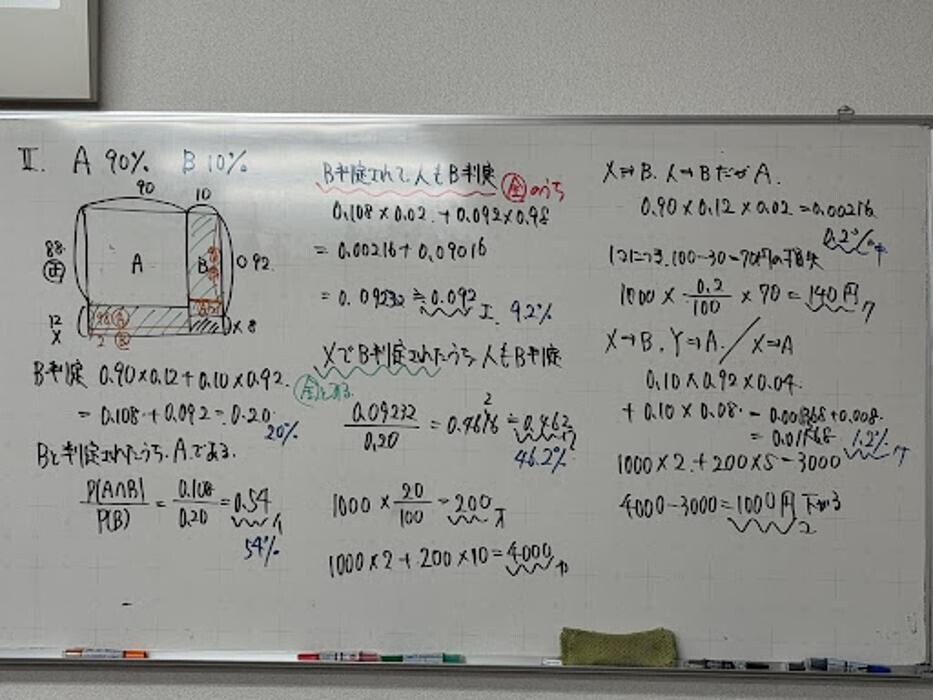 II. A 90% B 10%
90 10
88 正 A B 0.92
12 X 98 A 8
2 B
B判定 0.90×0.12+0.10×0.92.
=0.108+0.092=0.20
20%
Bと判定されたうち. Aである.
P(A∩B)/P(B) = 0.108/0.20 = 0.54 イ
54%
B判定されて、人もB判定 全のうち
0.108×0.02+0.092×0.98
=0.00216+0.09016
=0.09232≒0.092 エ 9.2%
XでB判定されたうち、人もB判定
全とある
0.09232/0.20 = 0.4616≒0.462 ウ
46.2%
1000×20/100=200 オ
1000×2+200×10=4000 カ
X→B. 人→BだがA.
0.90×0.12×0.02=0.00216
0.2%
1コにつき.100-30=70円の損失
1000×0.2/100×70=140円 ク
X→B. Y→A. / X→A
0.10×0.92×0.04.
+0.10×0.08.=0.00368+0.008.
=0.01168 1.2% ケ
1000×2+200×5=3000
4000-3000=1000円下がる コ